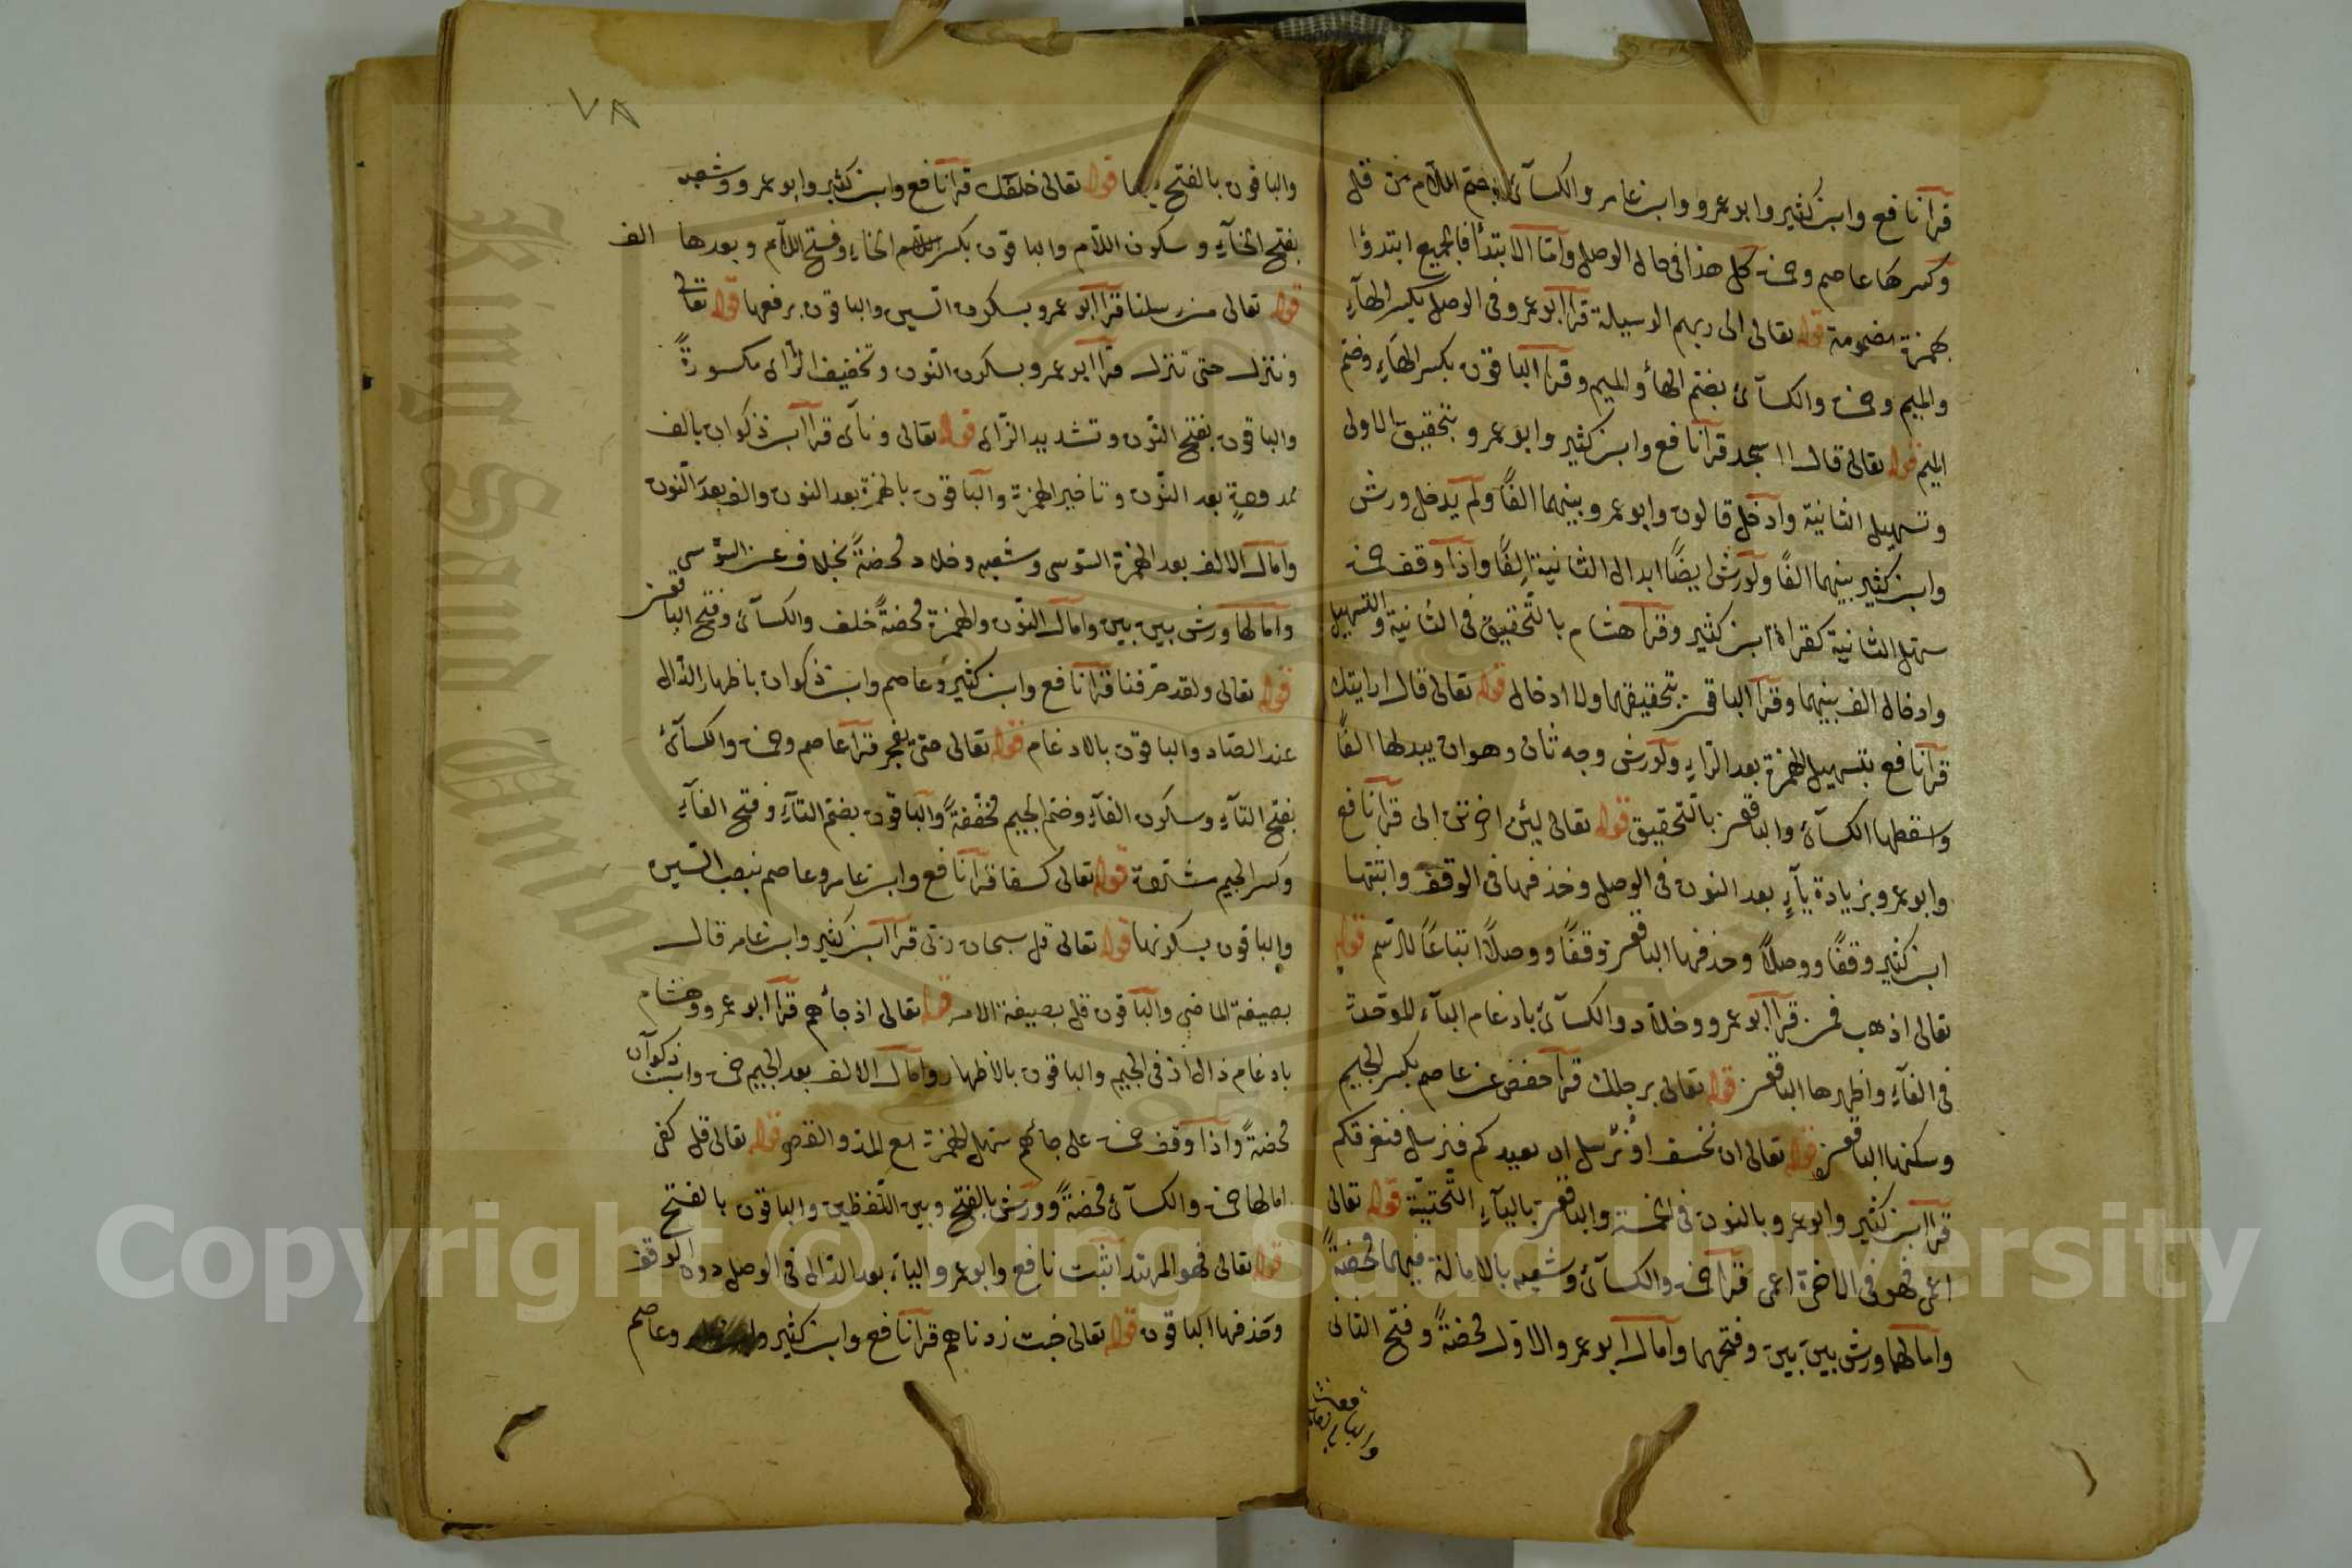 قرا نافع وابن كثير وابو عمرو وابن عامر والكسآئى بضم اللام من قل
وكسرها عاصم وحمزة كل هذا فى حال الوصل وامّا الابتدآ فالجميع ابتدؤا
بهمزة مضمومة قوله تعالى الى ربهم الوسيلة قرا ابو عمرو فى الوصل بكسر الهآءِ
والميم وحمزة والكسآئى بضم الهآء والميم وقرا الباقون بكسر الهآءِ وضم
الميم قوله تعالى قال ااسجد قرا نافع وابن كثير وابو عمرو بتحقيق الاولى
وتسهيل الثانية وادخل قالون وابو عمرو بينهما الفًا ولم يدخل ورش
وابن كثير بينهما الفًا ولورش ايضًا ابدال الثانية الفًا واذا وقف حمزة
سهل الثانية كقراءة ابن كثير وقرا هشام بالتحقيق فى الثانية والتسهيل
وادخال الف بينهما وقرا الباقون بتحقيقهما ولا ادخال قوله تعالى قال ارايتك
قرا نافع بتسهيل الهمزة بعد الرّاءِ ولورش وجه ثان وهو ان يبدلها الفًا
واسقطها الكسآئى والباقون بالتحقيق قوله تعالى لئن اخرتن الى قرا نافع
وابو عمرو بزيادة يآءٍ بعد النون فى الوصل وحذفها فى الوقف واثبتها
ابن كثير وقفًا ووصلًا وحذفها الباقون وقفًا ووصلًا اتباعًا للرّسم قوله
تعالى اذهب فمن قرا ابو عمرو وخلاد والكسآئى بادغام البآء الموحدة
فى الفآءِ واظهرها الباقون قوله تعالى ورجلك قرا حفص عن عاصم بكسر الجيم
وسكنها الباقون قوله تعالى ان نخسف او نرسل ان نعيدكم فنرسل فنغرقكم
قرا ابن كثير وابو عمرو بالنون فى الخمسة والباقون باليآءِ التحتيّة قوله تعالى
اعمى فهو فى الاخرة اعمى قرا حمزة والكسآئى وشعبه بالامالة فيهما محضةً
وامالهما ورش بين بين وفتحهما وامال ابو عمرو الاول محضةً وفتح الثانى
٧٨
والباقون بالفتح فيهما قوله تعالى خلفك قرا نافع وابن كثير وابو عمرو وشعبه
بفتح الخآءِ وسكون اللام والباقون بكسر الخاءِ وفتح اللام وبعدها الف
قوله تعالى من رسلنا قرا ابو عمرو بسكون السين والباقون برفعها قوله تعالى
وننزل حتى تنزل قرا ابو عمرو بسكون النون وتخفيف الزاى مكسورةً
والباقون بفتح النّون وتشديد الزاى قوله تعالى ونآى قرا ابن ذكوان بالف
ممدودةٍ بعد النّون وتاخير الهمزة والباقون بالهمزة بعد النون والف بعد النون
وامال الالف بعد الهمزة السّوسى وشعبه وخلاد محضةً بخلاف عن السّوسى
وامالها ورش بين بين وامال النّون والهمزة محضةً خلف والكسآئى وفتح الباقون
قوله تعالى ولقد صرفنا قرا نافع وابن كثير وعاصم وابن ذكوان باظهار الدّال
عند الصّاد والباقون بالادغام قوله تعالى حتى تفجر قرا عاصم وحمزة والكسآئى
بفتح التآءِ وسكون الفآءِ وضم الجيم مخففةً والباقون بضم التآءِ وفتح الفآءِ
وكسر الجيم مشدّدة قوله تعالى كسفا قرا نافع وابن عامر وعاصم بنصب السّين
والباقون بسكونها قوله تعالى قل سبحان ربّى قرا ابن كثير وابن عامر قال
بصيغة الماضى والباقون قل بصيغة الامر قوله تعالى اذ جآءهم قرا ابو عمرو وهشام
بادغام ذال اذ فى الجيم والباقون بالاظهار وامال الالف بعد الجيم حمزة وابن ذكوان
محضةً واذا وقف حمزة على جآءهم سهل الهمزة مع المدّ والقصر قوله تعالى قل كفى
امالها حمزة والكسآئى محضةً وورش بالفتح وبين اللّفظين والباقون بالفتح
قوله تعالى فهو المهتد اثبت نافع وابو عمرو اليآء بعد الدّال فى الوصل دون الوقف
وحذفها الباقون قوله تعالى خبت زدناهم قرا نافع وابن كثير وعاصم
Copyright © King Saud University
King Saud University
1957